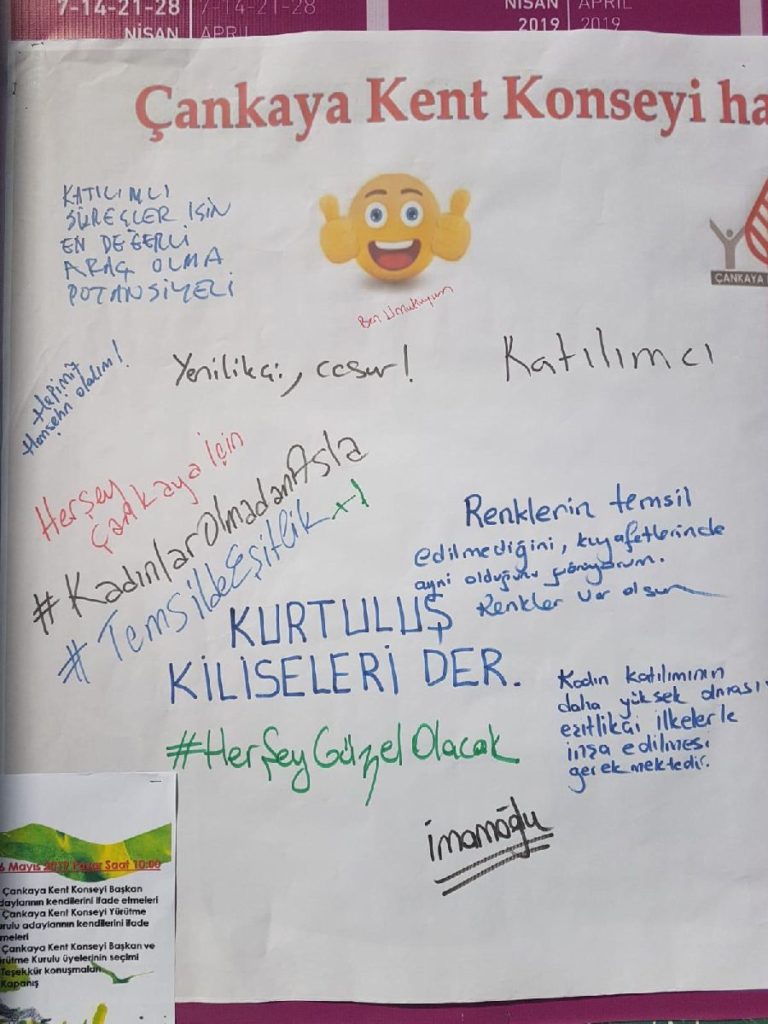 7-14-21-28 7-14-21-28
NİSAN APRIL
NİSAN APRIL
2019 2019
Çankaya Kent Konseyi ha
KATILIMLI
SÜREÇLER İÇİN
EN DEĞERLİ
ARAÇ OLMA
POTANSİYELİ
ÇANKAYA
Ben Umutluyum
Hepimiz
Hemşehri olalım!
Yenilikçi, cesur!
Katılımcı
Herşey
Çankaya İçin
#KadınlarOlmadanAsla
#TemsildeEşitlik +1
Renklerin temsil
edilmediğini, kıyafetlerinde
ayni olduğunu görüyorum.
Renkler var olsun
KURTULUŞ
KİLİSELERİ DER.
Kadın katılımının
daha yüksek olması
eşitlikçi ilkelerle
inşa edilmesi
gerekmektedir.
#HerŞeyGüzelOlacak
İmamoğlu
6 Mayıs 2019 Pazar Saat 10:00
Çankaya Kent Konseyi Başkan
daylarının kendilerini ifade etmeleri
Çankaya Kent Konseyi Yürütme
urulu adaylarının kendilerini ifade
meleri
Çankaya Kent Konseyi Başkan ve
ürütme Kurulu üyelerinin seçimi
Teşekkür konuşmaları
Kapanış